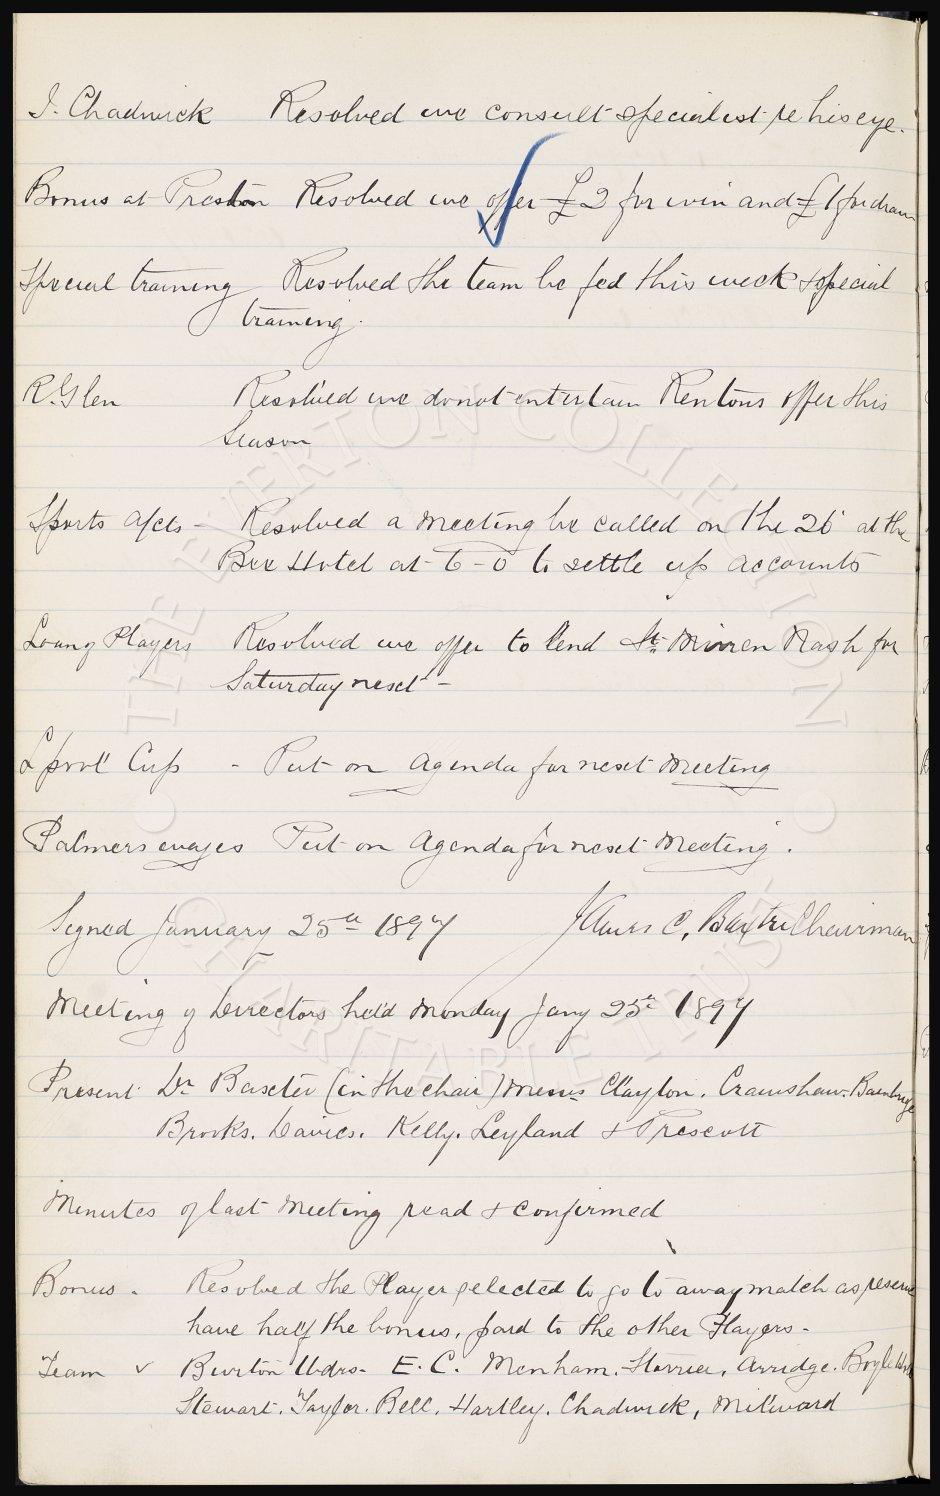 J. Chadwick Resolved we consult specialist re his eye.
Bonus at Preston Resolved we offer £2 for win and £1 for draw
Special training Resolved the team be fed this week & special
training.
R. Glen Resolved we do not entertain Rentons offer this
Season
Sports a/cts - Resolved a meeting be called on the 26 at the
Bee Hotel at 6-0 to settle up accounts
Loang Players Resolved we offer to lend St. Mirren Nash for
Saturday next -
L'pool Cup - Put on agenda for next meeting
Palmers wages Put on agenda for next meeting.
Signed January 25th 1897 James C. Baxter Chairman
Meeting of Directors held Monday Jany 25th 1897
Present Dr Baxter (in the chair) Messrs Clayton. Cramshaw. Bainbrige
Brooks. Davies. Kelly. Leyland & Prescott
Minutes of last Meeting read & confirmed
Bonus - Resolved the Player selected to go to away match as reserve
have half the bonus, paid to the other Players -
Team v Burton Wdrs - E. C. Menham. Storrier. Arridge. Boyle
Stewart. Taylor. Bell. Hartley. Chadwick, Milward
THE EVERTON COLLECTION
CHARITABLE TRUST